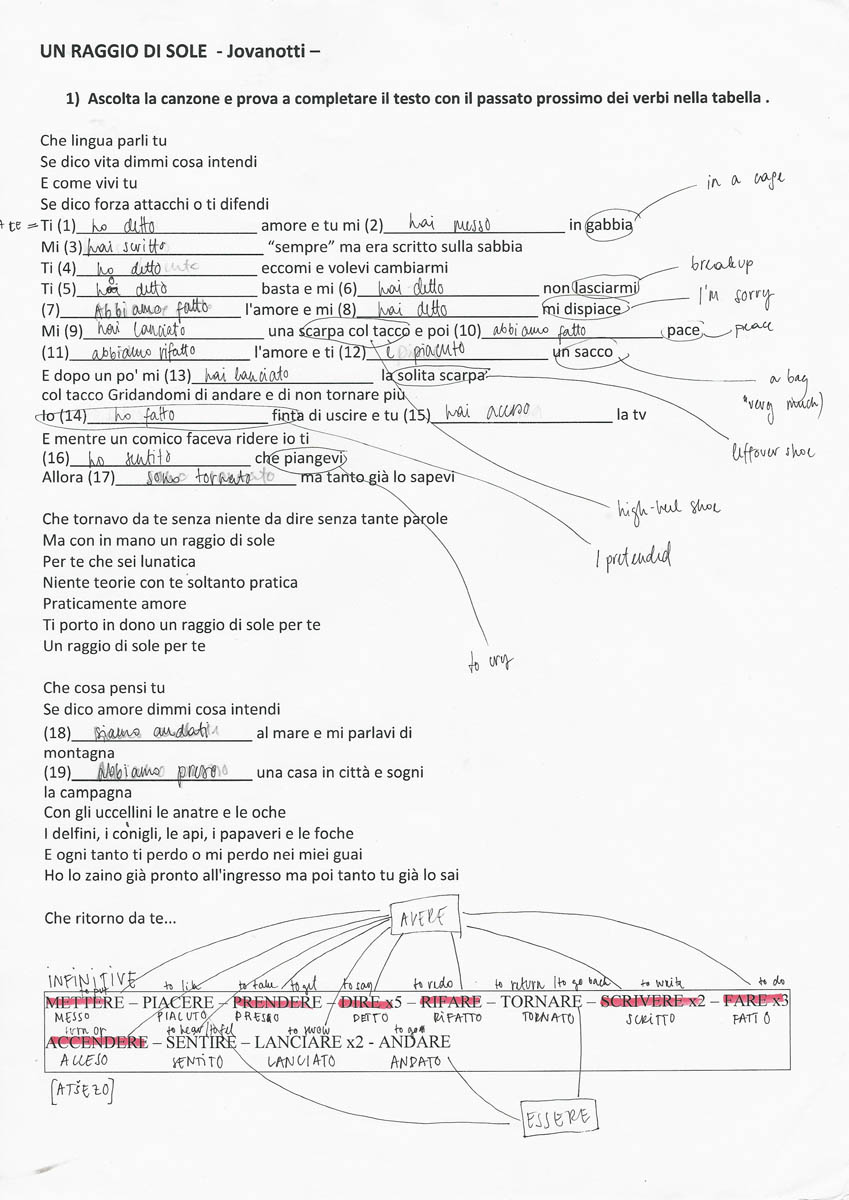 UN RAGGIO DI SOLE - Jovanotti –
1) Ascolta la canzone e prova a completare il testo con il passato prossimo dei verbi nella tabella .
Che lingua parli tu
Se dico vita dimmi cosa intendi
E come vivi tu
Se dico forza attacchi o ti difendi
in a cage
A te = Ti (1) ho detto amore e tu mi (2) hai messo in gabbia
Mi (3) hai scritto “sempre” ma era scritto sulla sabbia
Ti (4) ho detto eccomi e volevi cambiarmi
breakup
Ti (5) ho detto basta e mi (6) hai detto non lasciarmi
I'm sorry
(7) Abbiamo fatto l'amore e mi (8) hai detto mi dispiace
Mi (9) hai lanciato una scarpa col tacco e poi (10) abbiamo fatto pace peace
(11) abbiamo rifatto l'amore e ti (12) è piaciuto un sacco
E dopo un po' mi (13) hai lanciato la solita scarpa
a bag
col tacco Gridandomi di andare e di non tornare più
(very much)
Io (14) ho fatto finta di uscire e tu (15) hai acceso la tv
E mentre un comico faceva ridere io ti
leftover shoe
(16) ho sentito che piangevi
Allora (17) sono tornato ma tanto già lo sapevi
high-heel shoe
Che tornavo da te senza niente da dire senza tante parole
Ma con in mano un raggio di sole
I pretended
Per te che sei lunatica
Niente teorie con te soltanto pratica
Praticamente amore
Ti porto in dono un raggio di sole per te
Un raggio di sole per te
to cry
Che cosa pensi tu
Se dico amore dimmi cosa intendi
(18) siamo andati al mare e mi parlavi di
montagna
(19) Abbiamo preso una casa in città e sogni
la campagna
Con gli uccellini le anatre e le oche
I delfini, i conigli, le api, i papaveri e le foche
E ogni tanto ti perdo o mi perdo nei miei guai
Ho lo zaino già pronto all'ingresso ma poi tanto tu già lo sai
Che ritorno da te...
AVERE
INFINITIVE
to put to like to take / to get to say to redo to return / to go back to write to do
METTERE – PIACERE – PRENDERE – DIRE x5 – RIFARE – TORNARE – SCRIVERE x2 – FARE x3
MESSO PIACIUTO PRESO DETTO RIFATTO TORNATO SCRITTO FATTO
turn on to hear / to feel to throw to go
ACCENDERE – SENTIRE – LANCIARE x2 - ANDARE
ACCESO SENTITO LANCIATO ANDATO
[ATŠEZO]
ESSERE